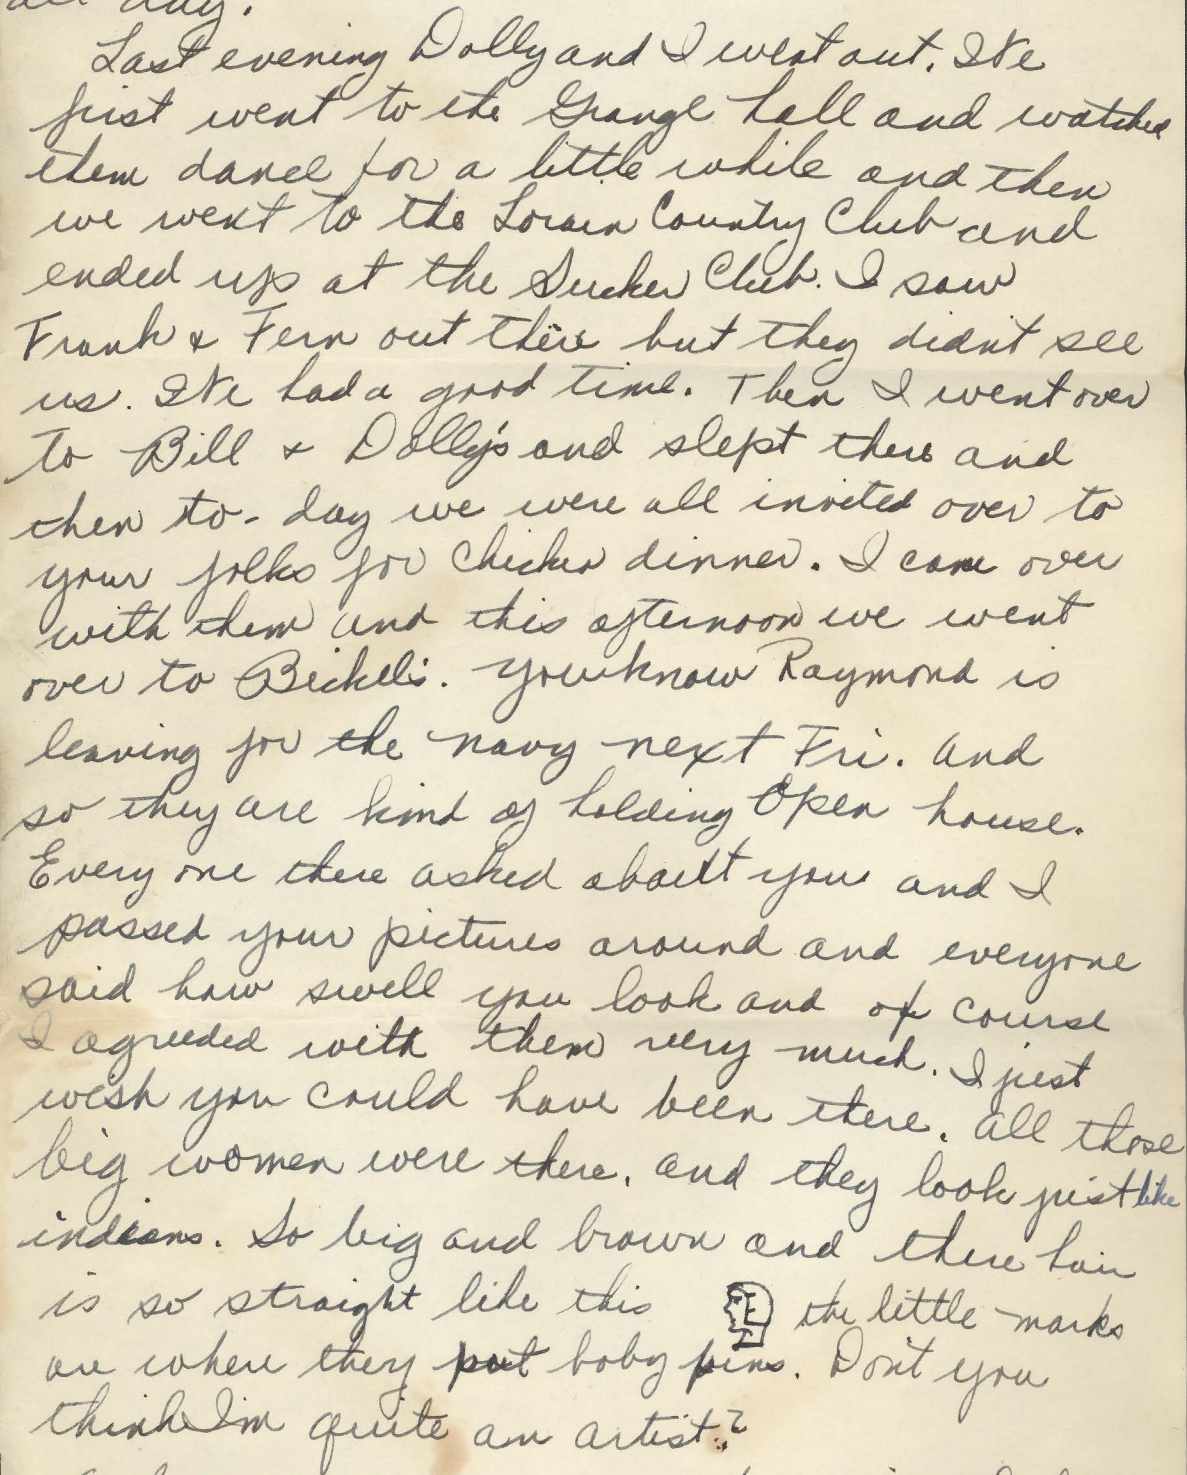 all day.
Last evening Dolly and I went out. We
first went to the Grange hall and watched
them dance for a little while and then
we went to the Lorain Country Club and
ended up at the Sucker Club. I saw
Frank & Fern out there but they didn't see
us. We had a good time. Then I went over
to Bill & Dolly's and slept there and
then to-day we were all invited over to
your folks for chicken dinner. I came over
with them and this afternoon we went
over to Bickel's. You know Raymond is
leaving for the navy next Fri. and
so they are kind of holding Open house.
Every one there asked about you and I
passed your pictures around and everyone
said how swell you look and of course
I agreeded with them very much. I just
wish you could have been there. All those
big women were there. and they look just like
indians. So big and brown and there hair
is so straight like this the little marks
are where they put boby pins. Don't you
think I'm quite an artist?